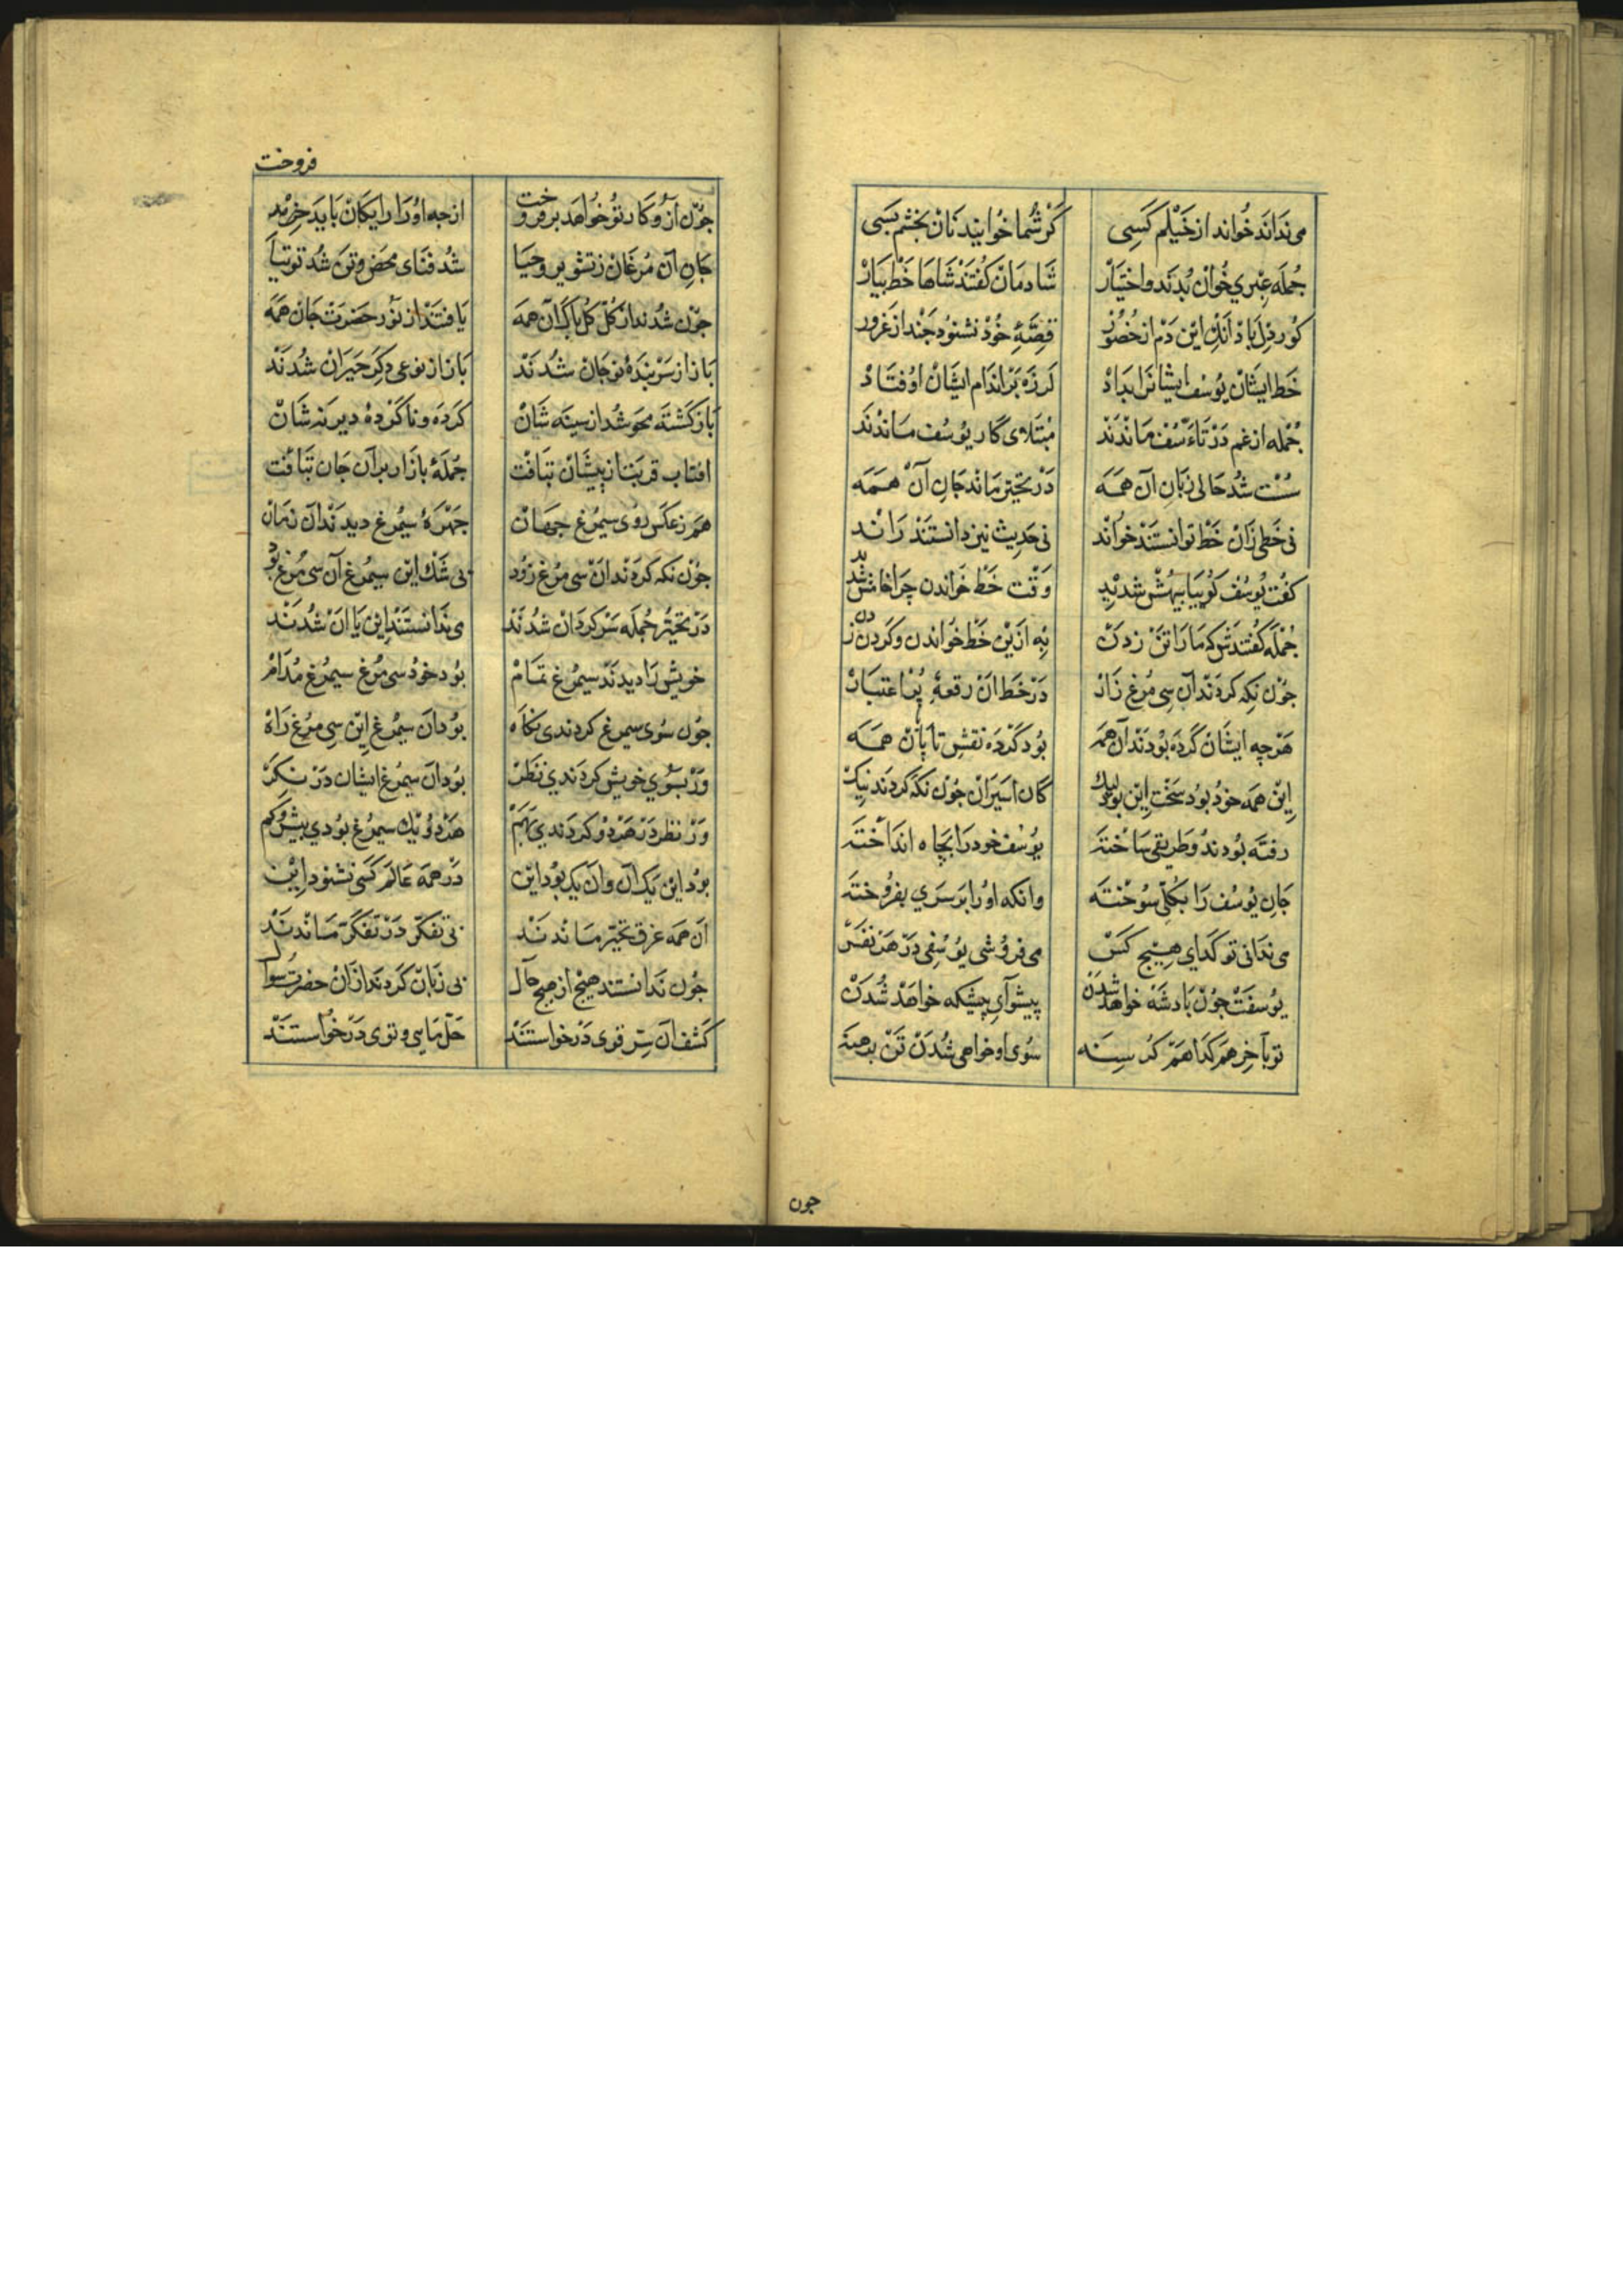 می نداند خواند از خیلم کسی گر شما خوانید نان بخشم بسی
جمله عبری خوان بدند و اختیار شادمان گفتند شاها خط بیار
کور دل باد آنک این دم از حضور قصهٔ خود نشنود چند از غرور
خط ایشان یوسف ایشانرا بداد لرزه بر اندام ایشان اوفتاد
جمله از غم در تاسف ماندند مبتلای کار یوسف ماندند
سست شد حالی زبان آن همه در تحیر ماند جان آن همه
نی خطی زان خط توانستند خواند نی حدیث نیز دانستند راند
گفت یوسف گوییا بیهش شدید وقت خط خواندن چرا خامش شدید
جمله گفتندش که ما را تن زدن به ازین خط خواندن و گردن زدن
چون نکه کردند آن سی مرغ زار در خط آن رقعهٔ پر اعتبار
هرچه ایشان کرده بودند آن همه بود کرده نقش تا پایان همه
این همه خود بود سخت این بود لیک کان اسیران چون نکه کردند نیک
رفته بودند و طریقی ساخته یوسف خود را بچاه انداخته
جان یوسف را بکلی سوخته وانکه او را بر سری بفروخته
می ندانی تو گدای هیچ کس می فروشی یوسفی در هر نفس
یوسفت چون پادشه خواهد شدن پیشوای پیشکه خواهد شدن
تو بآخر هم گدا هم گرسنه سوی او خواهی شدن تن برهنه
چون
فروخت
چون ازو کار تو خواهد بر فروخت از چه او را رایکان باید
جان آن مرغان ز تشویر و حیا شد فنای محض و تن شد توتیا
چون شدند از کل کل پاک آن همه یافتند از نور حضرت جان همه
باز از سر بندهٔ نوجان شدند باز از نوعی دگر حیران شدند
باز گشته محو شد از سینه شان کرده و ناکرده دیرینه شان
افتاب قربت از پیشان بتافت جملهٔ بازار بر آن جان بتافت
هم ز عکس روی سیمرغ جهان چهرهٔ سیمرغ دیدند آن زمان
چون نکه کردند آن سی مرغ زود بی شک این سیمرغ آن سی مرغ بود
در تحیر جمله سرگردان شدند می ندانستند این یا آن شدند
خویش را دیدند سیمرغ تمام بود خود سی مرغ سیمرغ مدام
چون سوی سیمرغ کردندی نکاه بود آن سیمرغ این سی مرغ راه
ور بسوی خویش کردندی نظر بود آن سیمرغ ایشان در نکر
ور نظر در هر دو کردندی بهم هر دو یک سیمرغ بودی بیش و کم
بود این یک آن وان یک بود این در همه عالم کسی نشنود این
آن همه غرق تحیر ماندند بی تفکر در تفکر ماندند
چون ندانستند هیچ از هیچ حال بی زبان کردند ازان حضرت سوال
کشف آن سر قوی در خواستند حل مایی و توی در خواستند